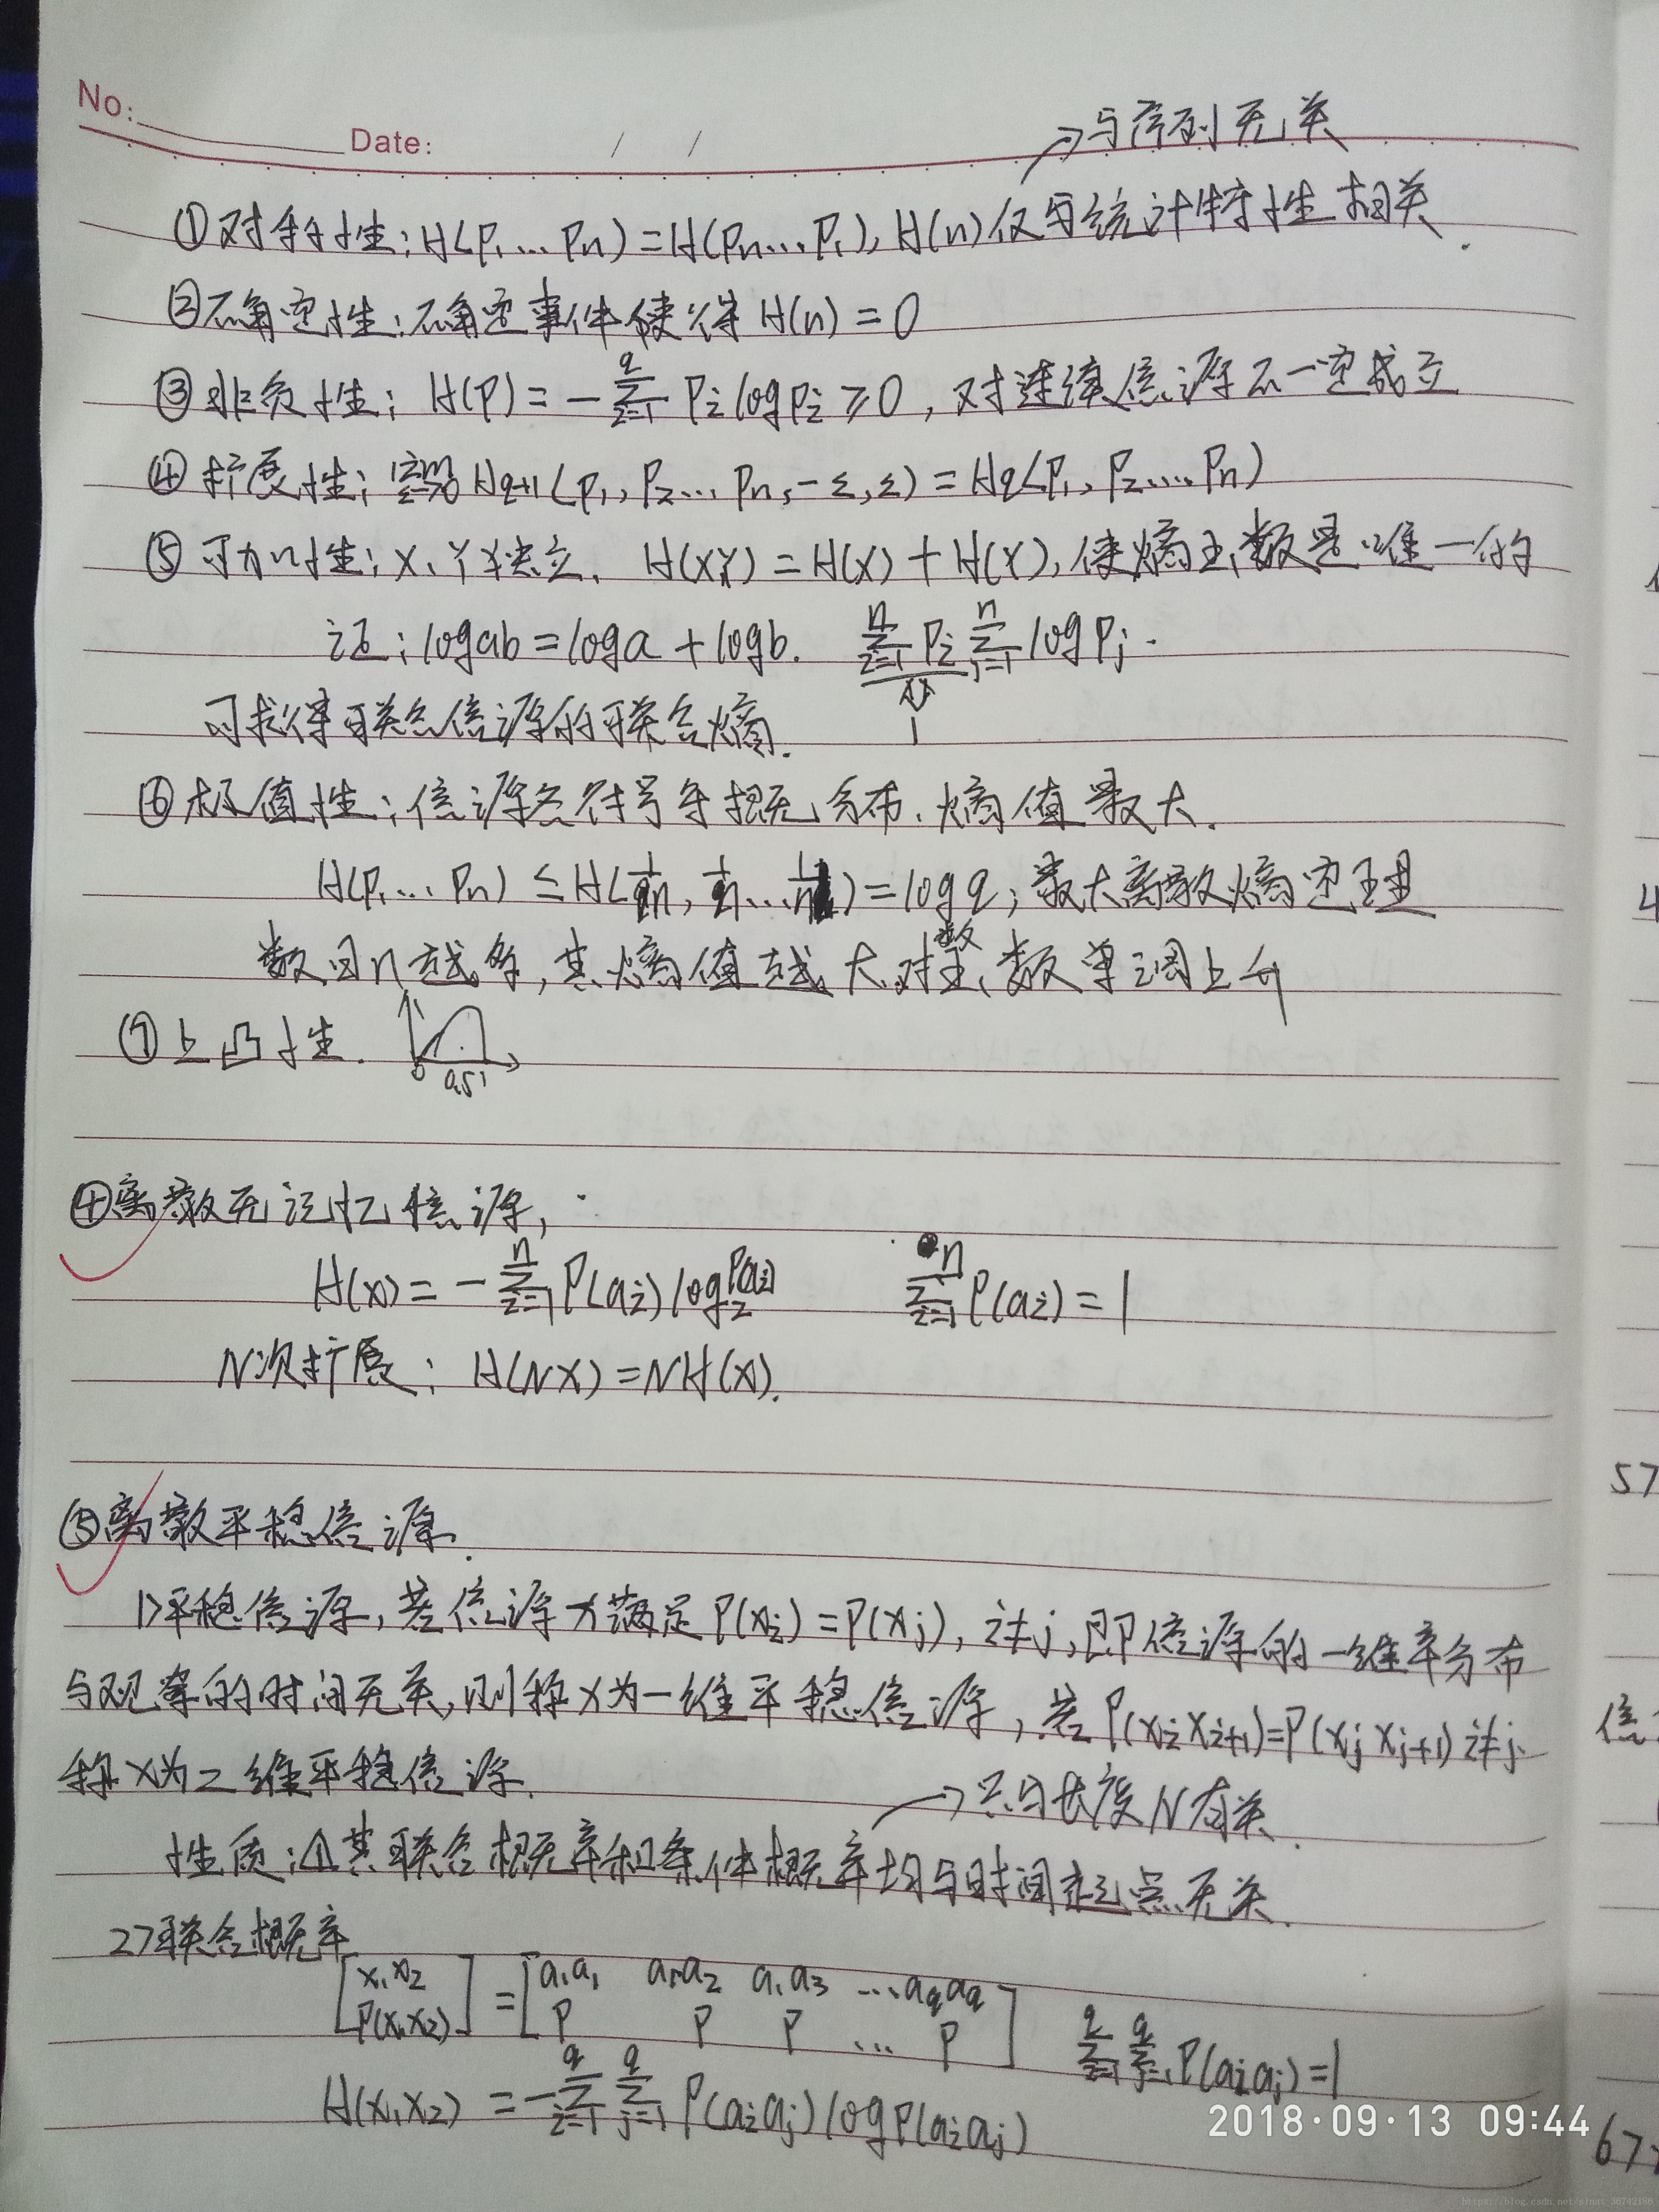 No:
Date: / /
→与序列无关
①对称性：H(p₁…pn)=H(pn…p₁), H(n)仅与统计特性相关.
②确定性：确定事件使得 H(n)=0
③非负性：H(p)=-∑_{i=1}^{q} pi log pi ≥0，对连续信源不一定成立
④扩展性： H_{q+1}(p₁, p₂… pn,-ε,ε)=Hq(p₁, p₂…pn)
⑤可加性：X、Y独立. H(XY)=H(X)+H(Y),使熵函数是唯一的
证：log ab=log a+log b. ∑_{i=1}^{n} pi ∑_{j=1}^{n} log pj.
1
可求得联合信源的联合熵.
⑥极值性：信源各符号等概分布.熵值最大.
H(p₁…pn) ≤H(1/n, 1/n…1/n)=log q；最大离散熵定理
数目n越多,其熵值越大.对数函数单调上升
⑦上凸性.
0 0.5 1
④离散无记忆信源，
H(x)=-∑_{i=1}^{n} P(ai) log₂P(ai) ∑_{i=1}^{n} P(ai)=1
N次扩展：H(NX)=NH(X).
⑤离散平稳信源.
1>平稳信源，若信源X满足P(xi)=P(xj), i≠j,即信源的一维率分布
与观察的时间无关,则称X为一维平稳信源，若P(xi xi+1)=P(xj xj+1) i≠j.
称X为二维平稳信源.
→只与长度N有关.
性质：①其联合概率和条件概率均与时间起点无关.
2>联合概率
[x₁x₂] = [a₁a₁ a₁a₂ a₁a₃ …aqaq]
[P(x₁x₂)] [P P P … P] ∑_{i=1}^{q} ∑_{j=1}^{q} P(aiaj)=1
H(x₁x₂) =-∑_{i=1}^{q} ∑_{j=1}^{q} P(aiaj) log P(aiaj)
2018·09·13 09:44
4
57
信
67